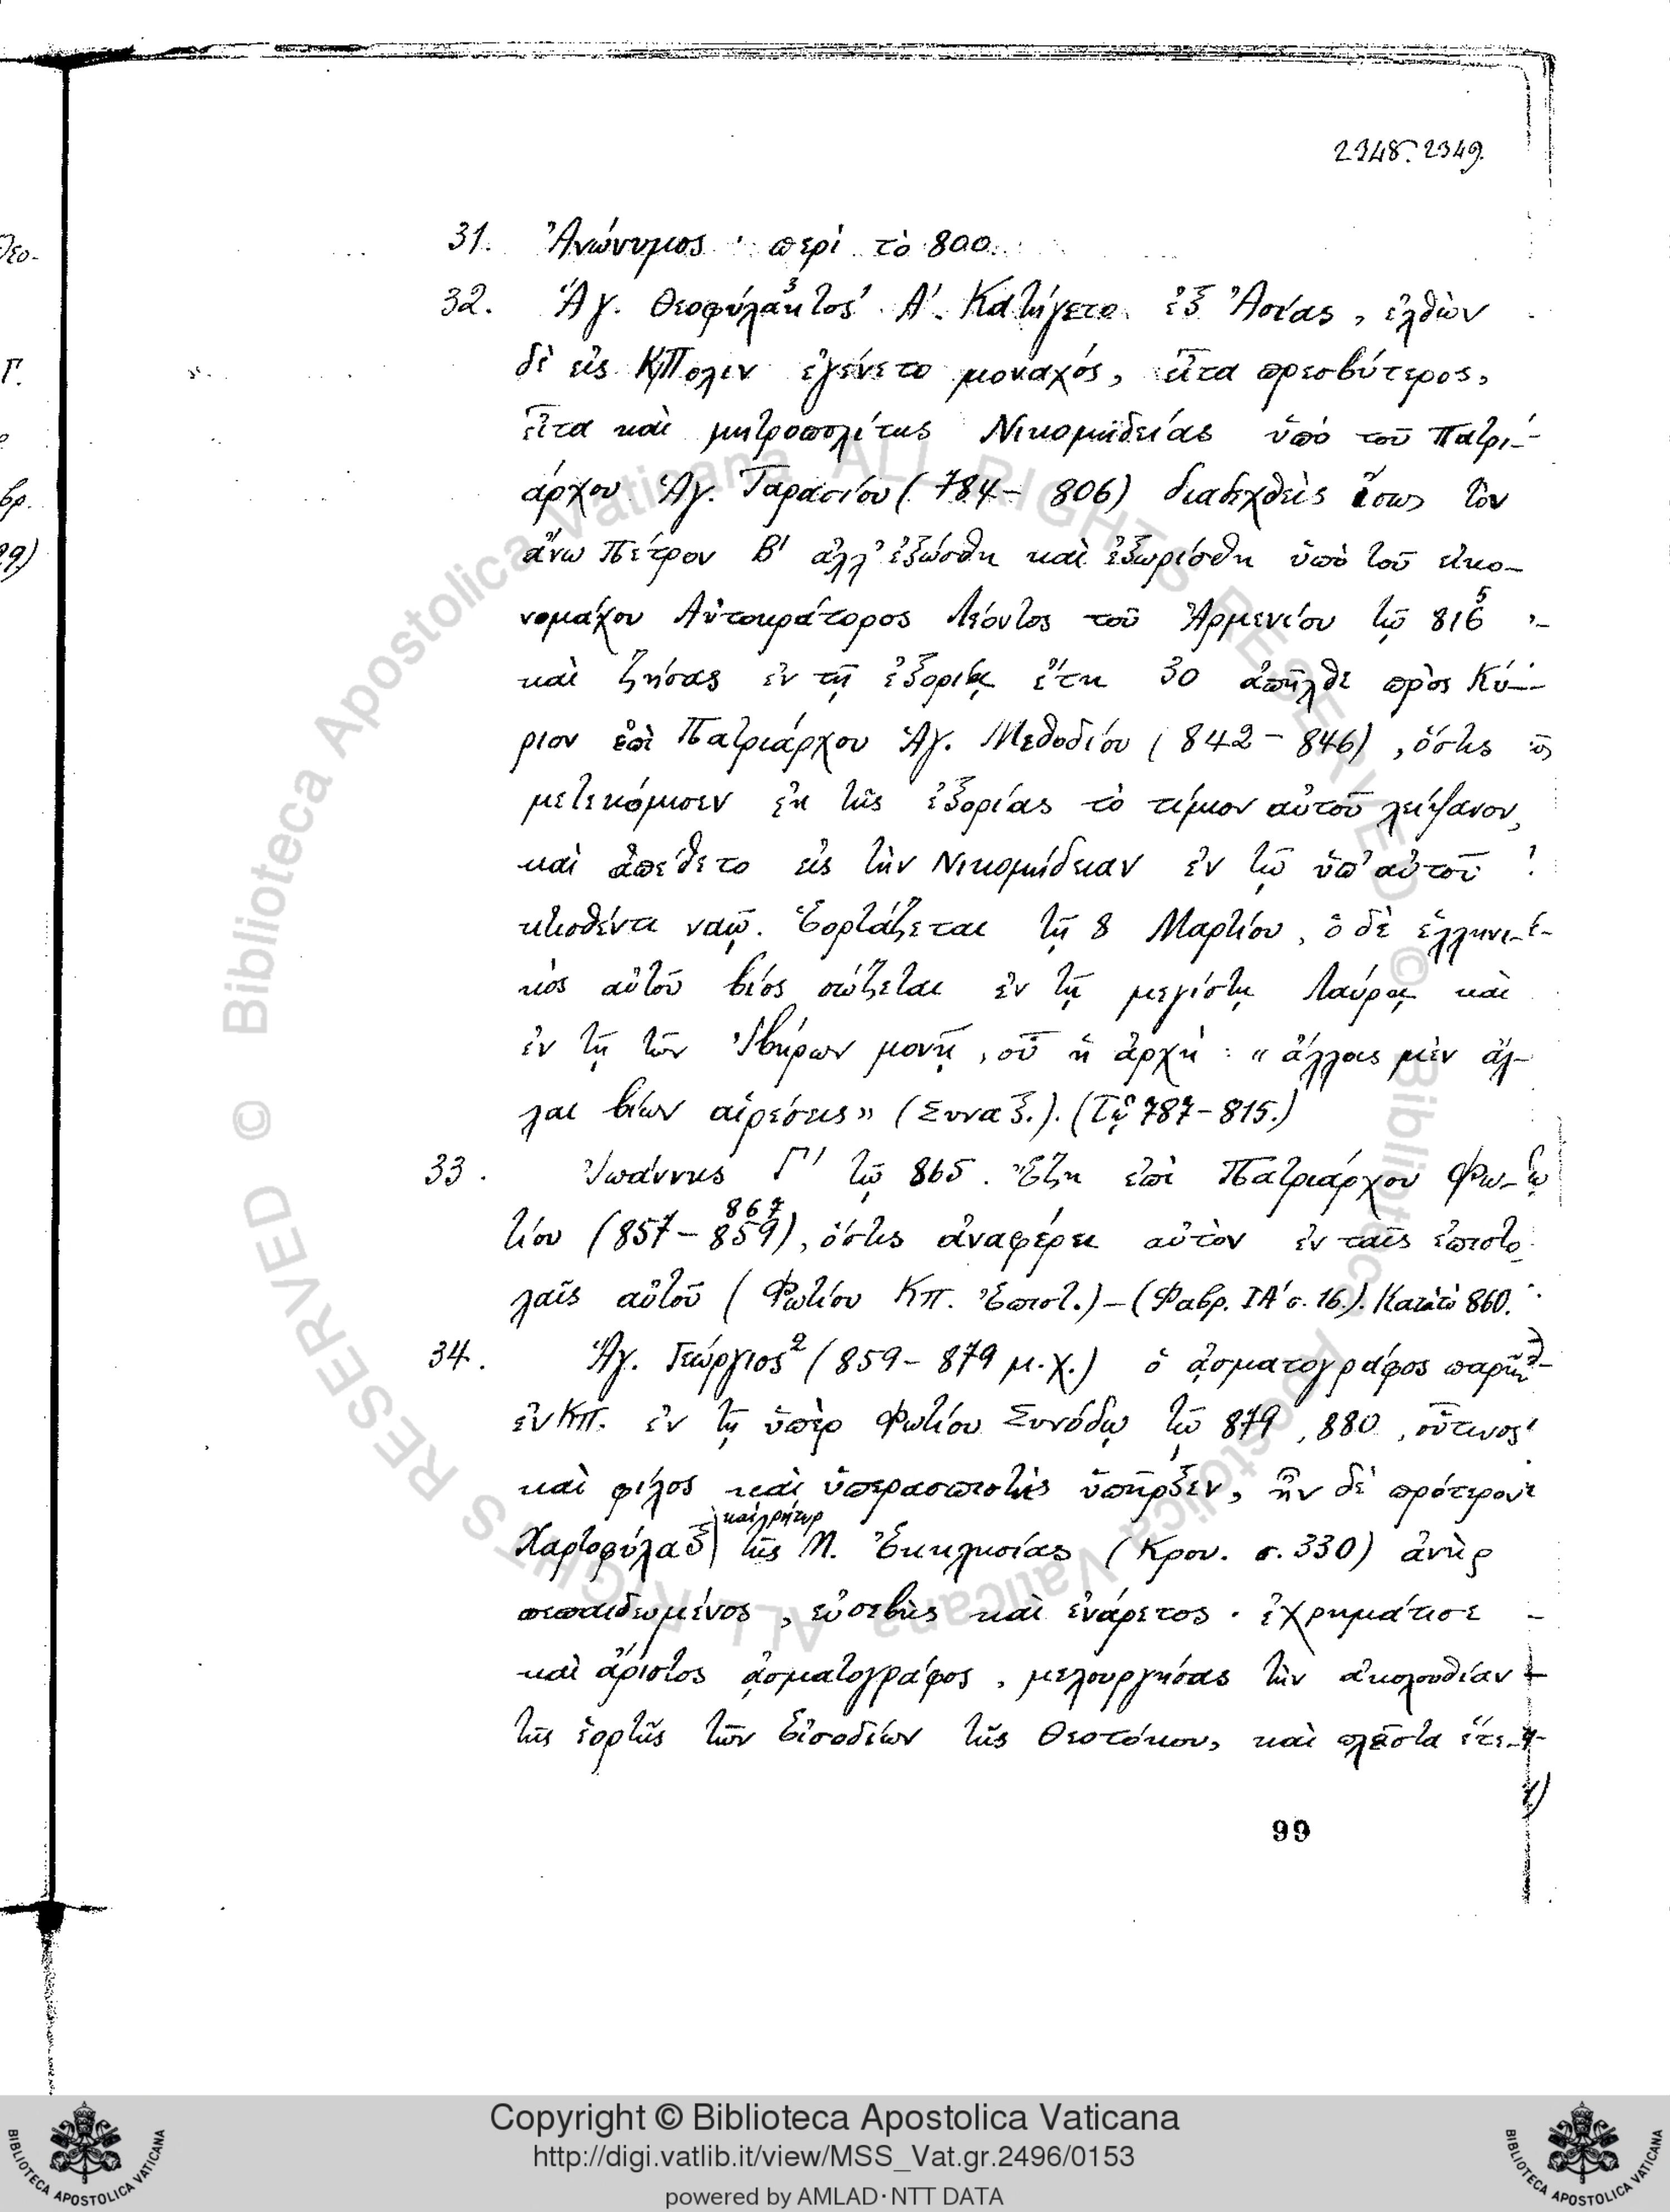 2348. 2349.
31. Ἀνώνυμος · περὶ τὸ 800.
32. Ἅγ. Θεοφύλακτος³ Α΄. Κατήγετο ἐξ Ἀσίας, ἐλθὼν
δὲ εἰς ΚΠολιν ἐγένετο μοναχός, εἶτα πρεσβύτερος,
εἶτα καὶ μητροπολίτης Νικομηδείας ὑπὸ τοῦ Πατρι-
άρχου Ἁγ. Ταρασίου (784 – 806) διαδεχθεὶς ἴσως τὸν
ἄνω Πέτρον Β΄ ἀλλ' ἐξώσθη καὶ ἐξωρίσθη ὑπὸ τοῦ εἰκο-
νομάχου Αὐτοκράτορος Λέοντος τοῦ Ἀρμενίου τῷ 816 5
καὶ ζήσας ἐν τῇ ἐξορίᾳ ἔτη 30 ἀπῆλθε πρὸς Κύ-
ριον ἐπὶ Πατριάρχου Ἁγ. Μεθοδίου (842 – 846), ὅστις
μετεκόμισεν ἐκ τῆς ἐξορίας τὸ τίμιον αὐτοῦ λείψανον,
καὶ ἀπέθετο εἰς τὴν Νικομήδειαν ἐν τῷ ὑπ' αὐτοῦ
κτισθέντι ναῷ. Ἑορτάζεται τῇ 8 Μαρτίου, ὁ δὲ ἑλληνι-
κὸς αὐτοῦ βίος σώζεται ἐν τῇ μεγίστῃ Λαύρᾳ καὶ
ἐν τῇ τῶν Ἰβήρων μονῇ, οὗ ἡ ἀρχή: «ἄλλαις μὲν ἄλ-
λαι βίων αἱρέσεις» (Συναξ.). (Τῷ 787 – 815.)
33. Ἰωάννης Γ΄ τῷ 865. Ἔζη ἐπὶ Πατριάρχου Φω-
867
τίου (857 – 859), ὅστις ἀναφέρει αὐτὸν ἐν ταῖς ἐπιστο
λαῖς αὐτοῦ (Φωτίου Κπ. Ἐπιστ.) – (Φαβρ. ΙΑ΄ σ. 16.). Κατὰ τὸ 860.
34. Ἅγ. Γεώργιος² (859 – 879 μ.χ.) ὁ ᾀσματογράφος παρῆν
ἐν Κπ. ἐν τῇ ὑπὲρ Φωτίου Συνόδῳ τῷ 879, 880, οὗτινος
καὶ φίλος καὶ ὑπερασπιστὴς ὑπῆρξεν, ἦν δὲ πρότερον
καὶ ρήτωρ
Χαρτοφύλαξ τῆς Μ. Ἐκκλησίας (Κρον. σ. 330) ἀνὴρ
πεπαιδευμένος, εὐσεβὴς καὶ ἐνάρετος · ἐχρημάτισε
καὶ ἄριστος ᾀσματογράφος, μελουργήσας τὴν ἀκολουθίαν
τῆς ἑορτῆς τῶν Εἰσοδίων τῆς Θεοτόκου, καὶ πλεῖστα ἕτε-
99
© Biblioteca Apostolica Vaticana ALL RIGHTS RESERVED
© Biblioteca Apostolica Vaticana ALL RIGHTS RESERVED
Copyright © Biblioteca Apostolica Vaticana
http://digi.vatlib.it/view/MSS_Vat.gr.2496/0153
powered by AMLAD·NTT DATA
BIBLIOTECA APOSTOLICA VATICANA
BIBLIOTECA APOSTOLICA VATICANA